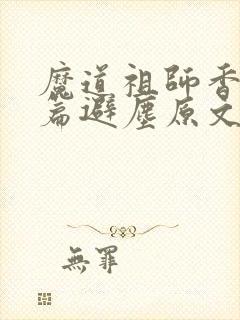 魔道祖師香
篇避塵原文
無罪